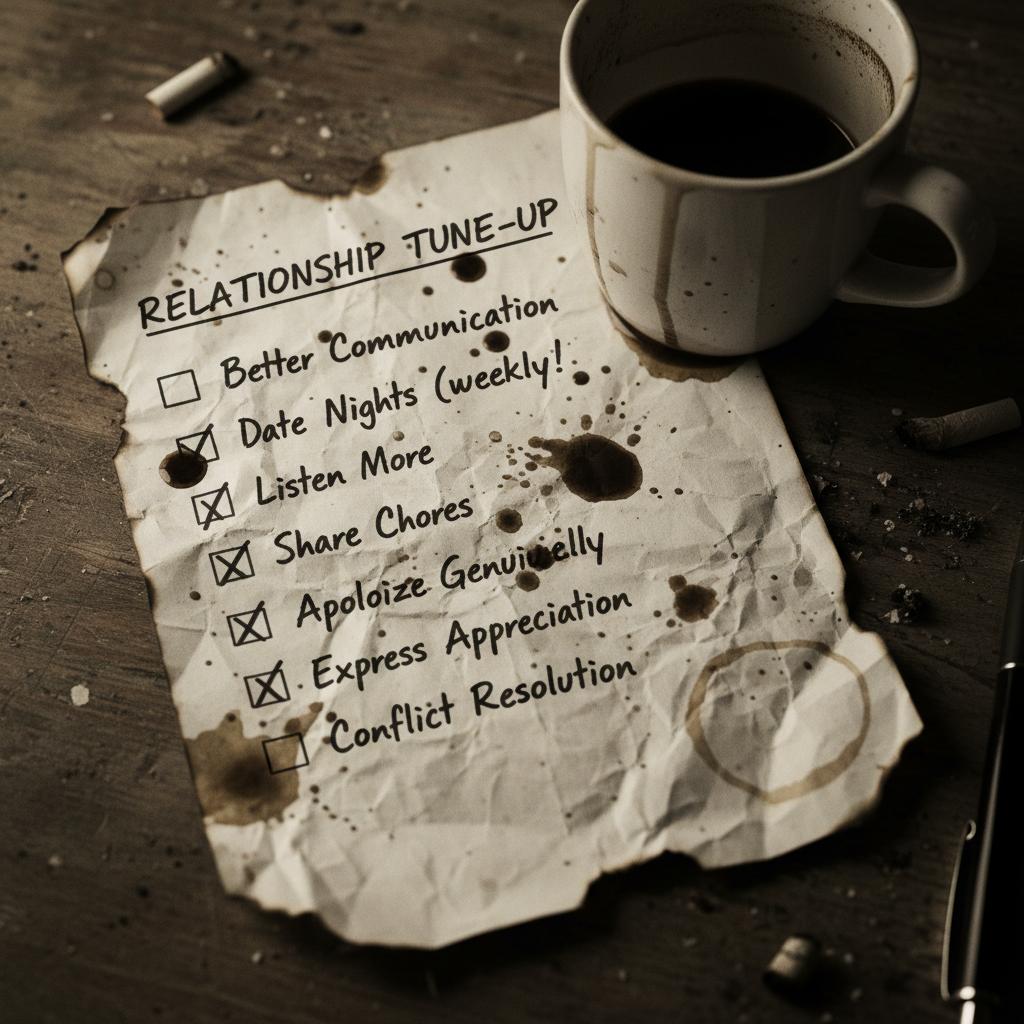 RELATIONSHIP TUNE-UP
☐ Better Communication
☑ Date Nights (weekly!
☒ Listen More
☒ Share Chores
☒ Apoloize Genuinelly
☒ Express Appreciation
☐ Conflict Resolution